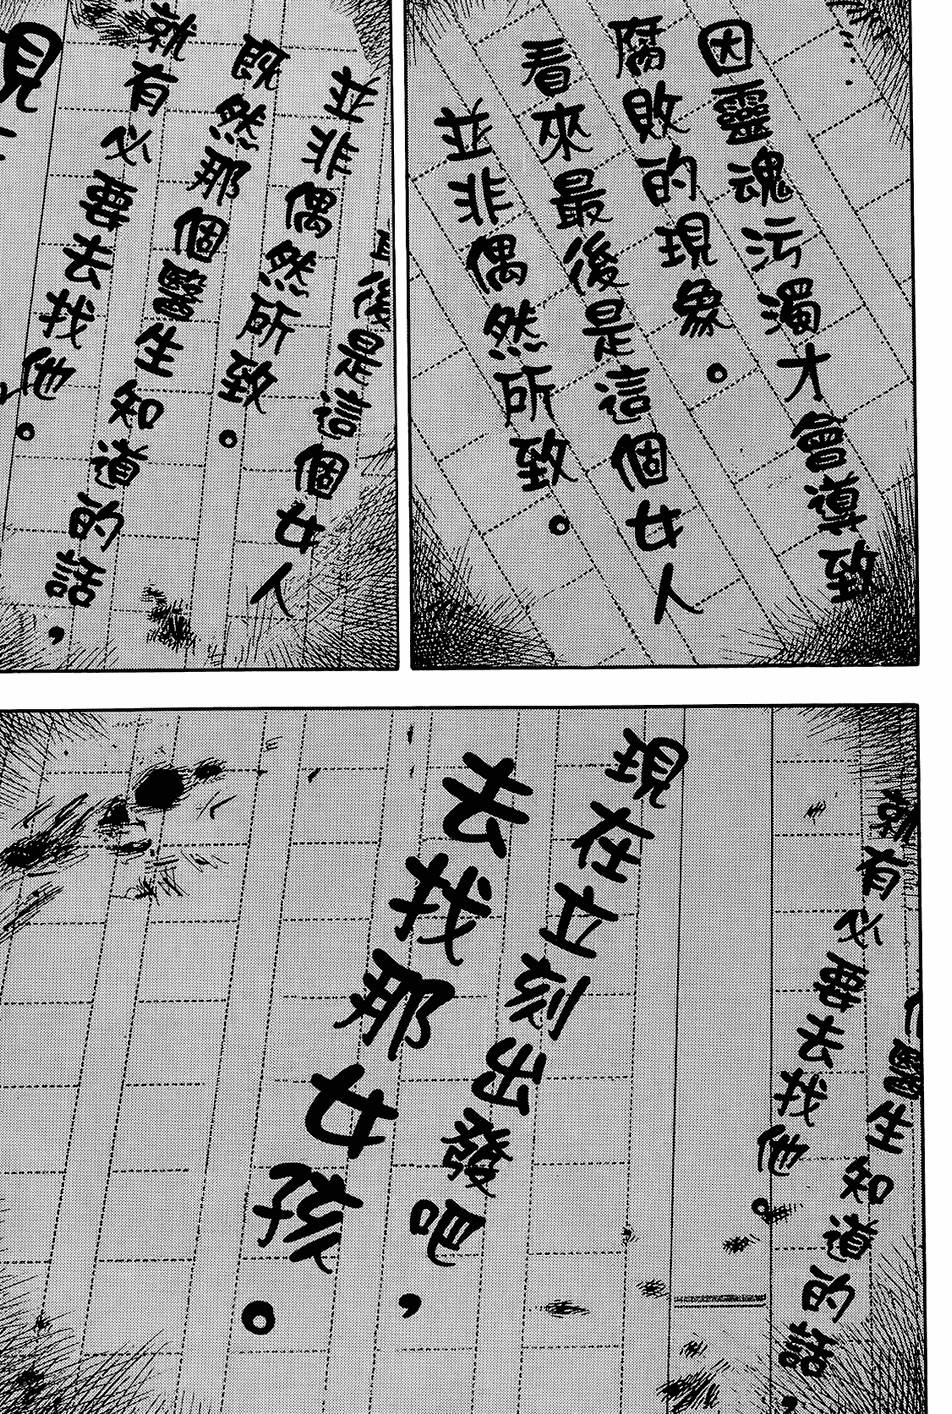 因靈魂污濁才會導致
腐敗的現象。
看來最後是這個女人
並非偶然所致。
後是這個女人
並非偶然所致。
既然那個醫生知道的話，
就有必要去找他。
現
醫生知道的話，
就有必要去找他。
現在立刻出發吧，
去找那女孩。